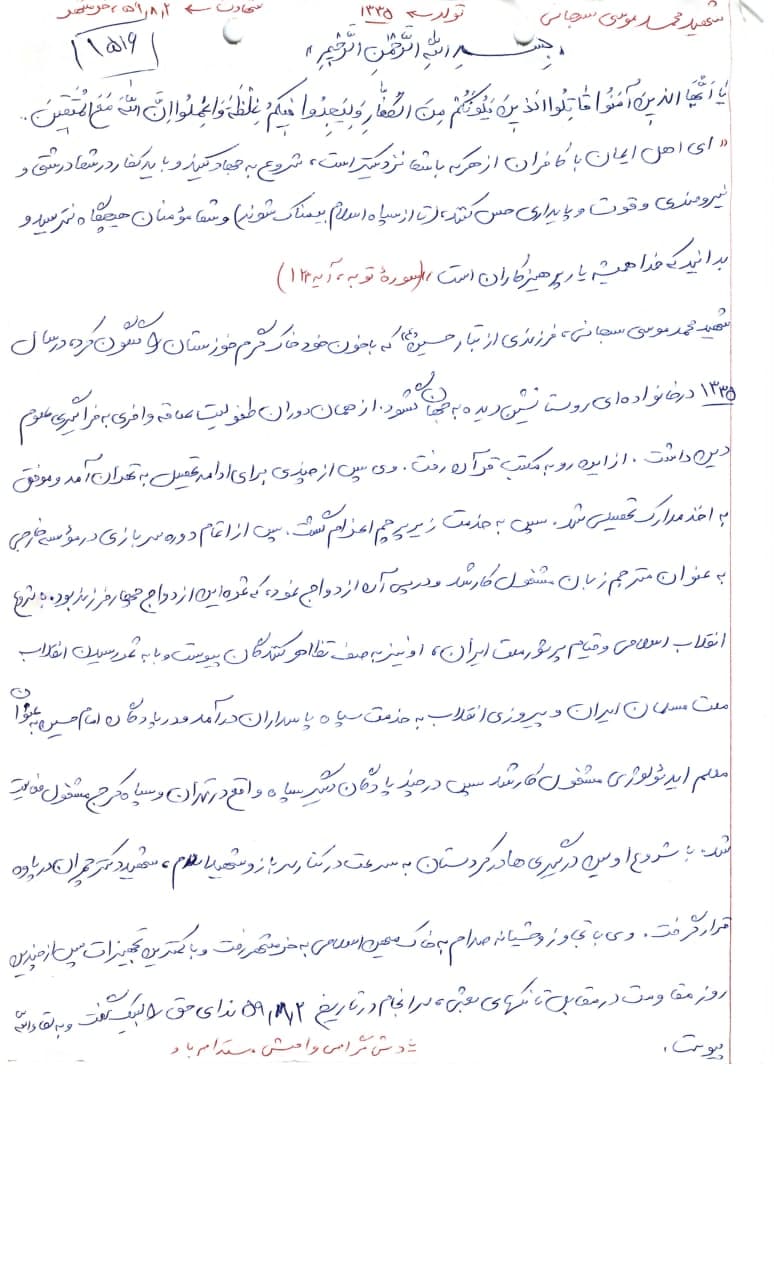 شهید محمد موسی سبحانی تولد ← ۱۳۳۵ شهادت ← ۵۹,۸,۲، خرمشهر
«بسم اللهِ الرَّحْمنِ الرَّحیمِ»
۱۵۱۶
یا اَیُّهَا الذینَ آمَنُوا قاتِلُوا الذینَ یَلُونَکُمْ مِنَ الکُفّارِ وَلیَجِدُوا فیکُمْ غِلْظَةً وَاعْلَمُوا اِنَّ اللهَ مَعَ المُتَّقینَ.
«ای اهل ایمان با کافران از هر که با شما نزدیکتر است، شروع به جهاد کنید و باید کفار در شما درشتی و
نیرومندی و قوت و پایداری حس کنند، (تا از سپاه اسلام بیمناک شوند) و شما مؤمنان هیچگاه نترسید و
بدانید که خدا همیشه یار پرهیزکاران است» (سورهٔ توبه، آیه ۱۲۳)
شهید محمد موسی سبحانی، فرزندی از تبار حسین(ع) که با خون خود خاک گرم خوزستان را گلگون کرد، در سال
۱۳۳۵ در خانواده‌ای روستا نشین دیده به جهان گشود. از همان دوران طفولیت علاقه وافری به فراگیری علوم
دین داشت. از این رو به مکتب قرآن رفت. وی پس از چندی برای ادامه تحصیل به تهران آمد و موفق
به اخذ مدارک تحصیلی شد. سپس به خدمت زیر پرچم اعزام گشت. پس از اتمام دوره سربازی در مؤسسه خارجی
به عنوان مترجم زبان مشغول کار شد و در پی آن ازدواج نمود، که ثمره این ازدواج چهار فرزند بود. با شروع
انقلاب اسلامی و قیام پرشور ملت ایران، او نیز به صف تظاهر کنندگان پیوست و با به ثمر رسیدن انقلاب
ملت مسلمان ایران و پیروزی انقلاب به خدمت سپاه پاسداران درآمد و در پادگان امام حسین به عنوان
معلم ایدئولوژی مشغول کار شد سپس در چند پادگان دیگر سپاه واقع در تهران و سپاه کرج مشغول فعالیت
شد. با شروع اولین درگیری ها در کردستان به سرعت در کنار سرباز و شهید اسلام، شهید دکتر چمران در پاوه
قرار گرفت. وی با تجاوز وحشیانه صدام به خاک میهن اسلامی به خرمشهر رفت و با کمترین تجهیزات پس از چندین
روز مقاومت در مقابل تانکهای بعثی، سرانجام در تاریخ ۵۹,۸,۲ ندای حق را لبیک گفت و به لقاءالله
پیوست.
یادش گرامی و راهش مستدام باد